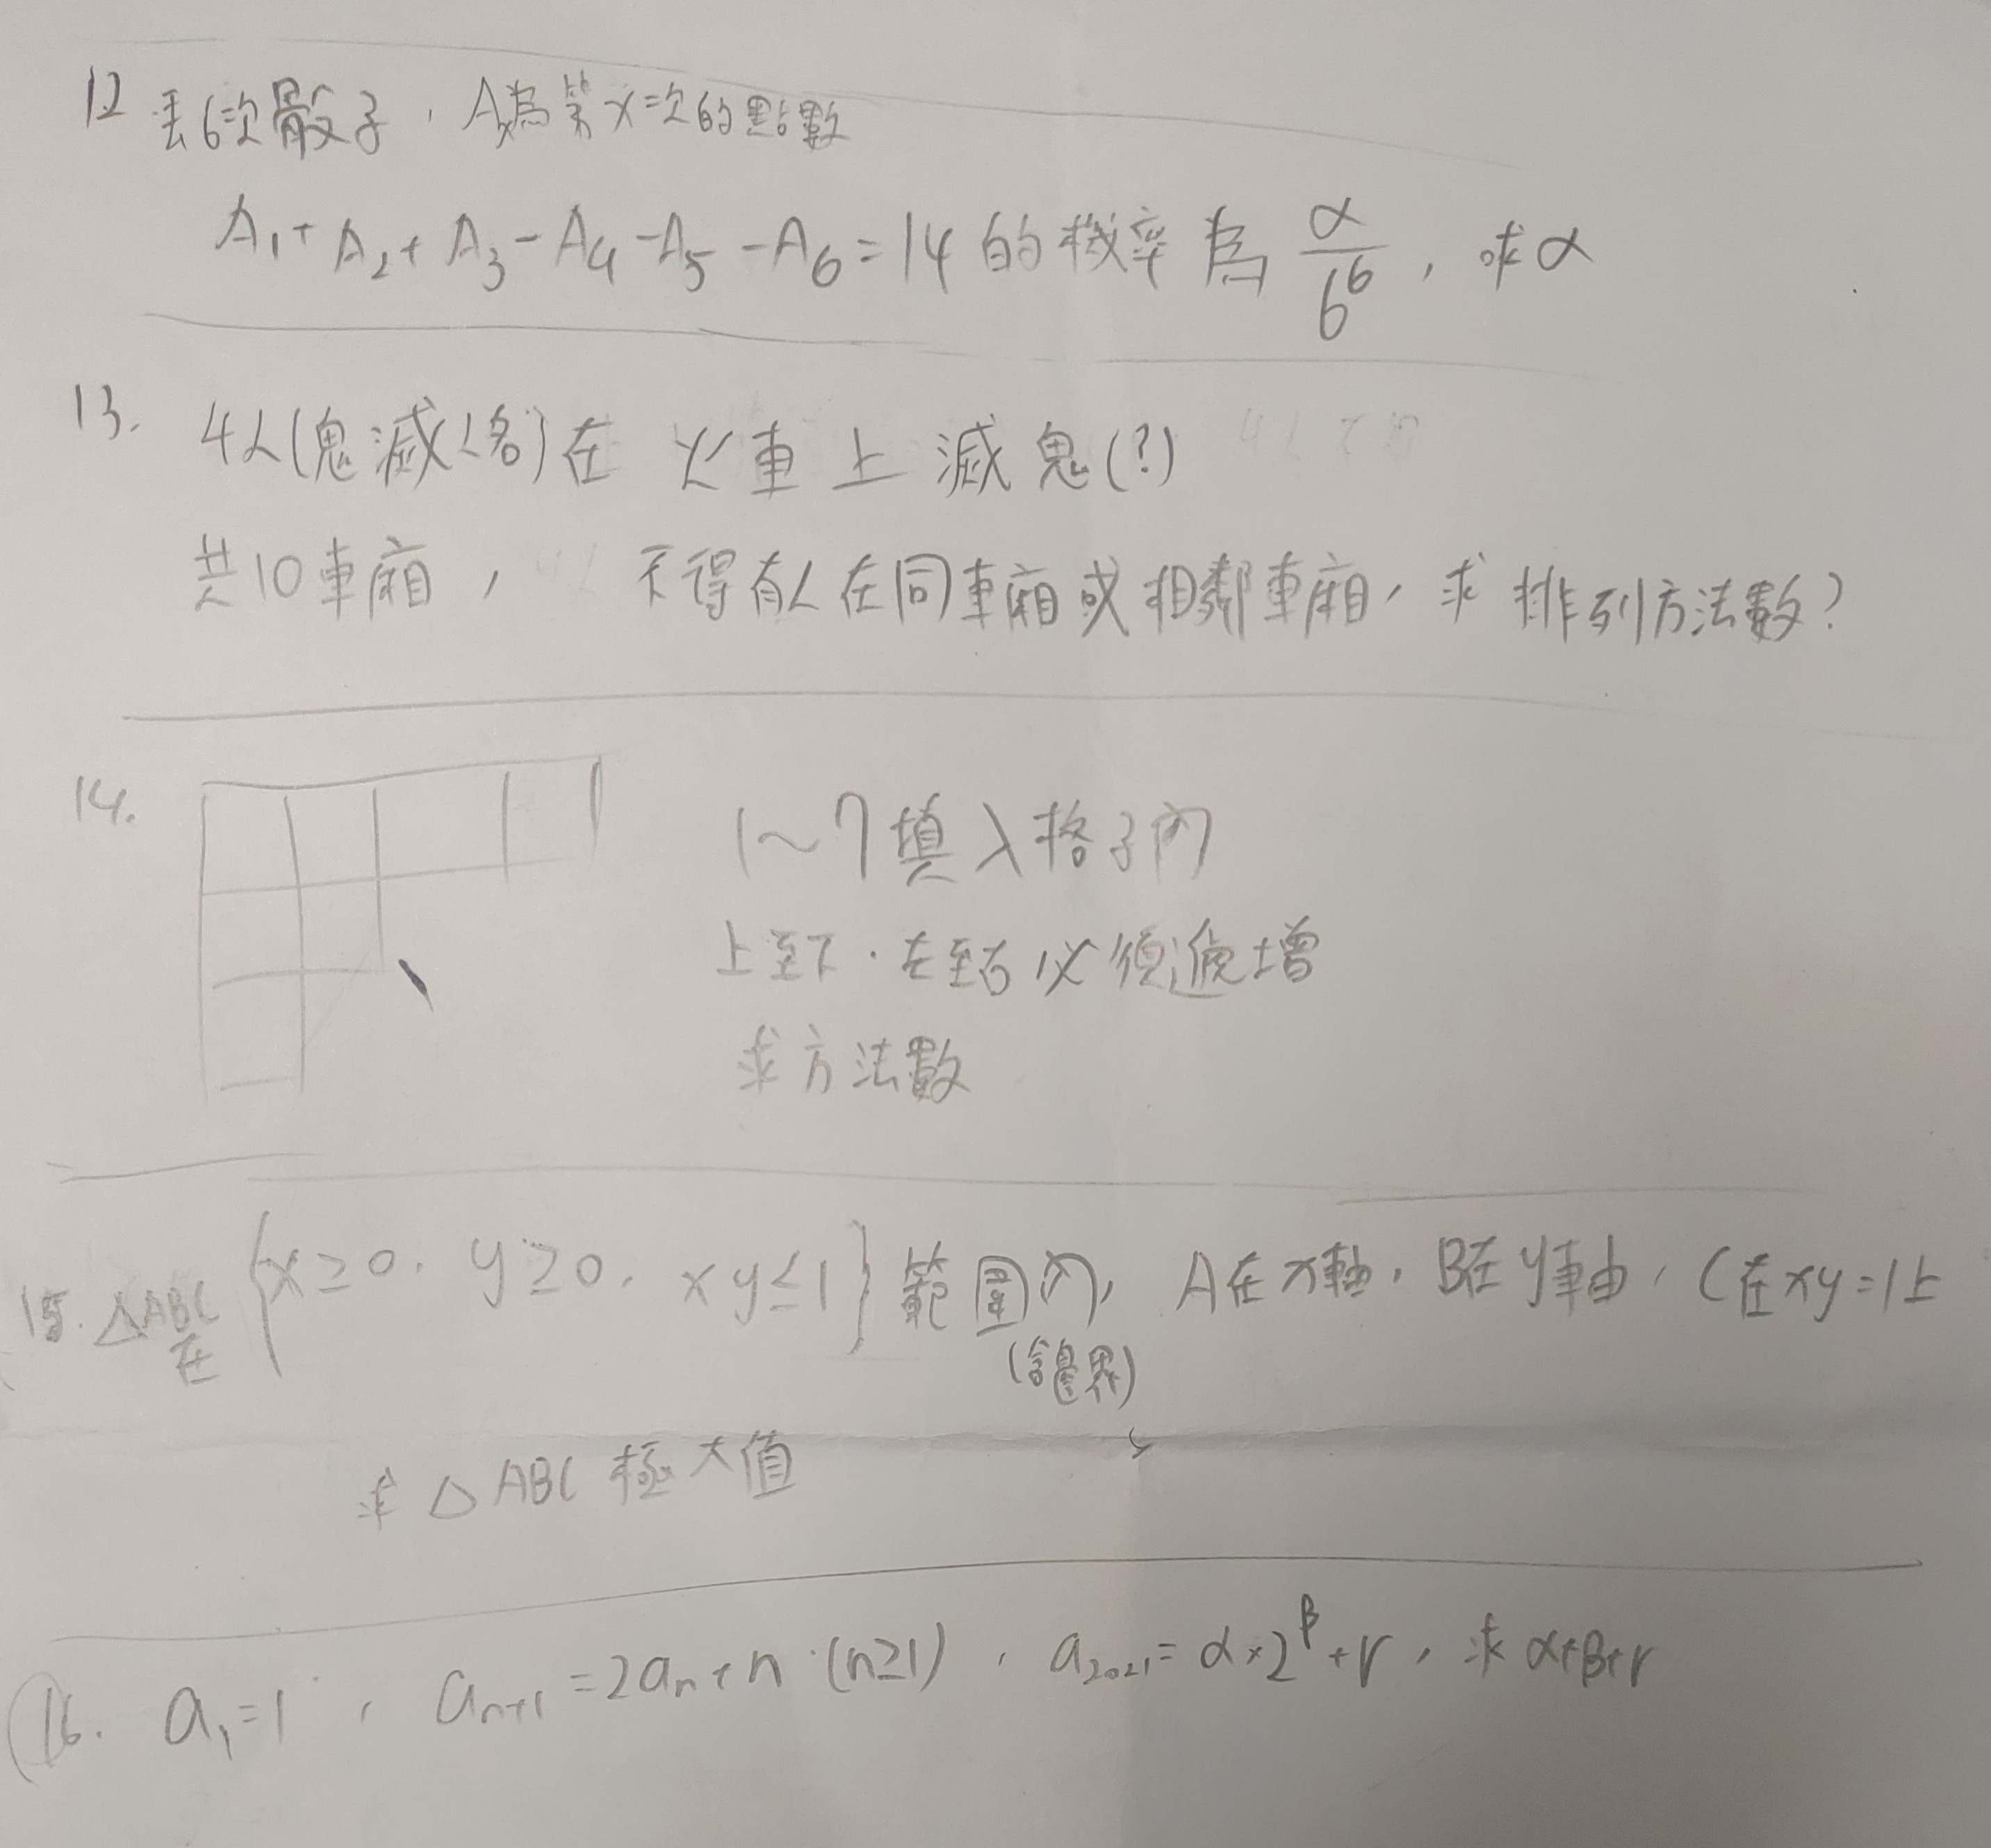 12 丟6次骰子，Aₓ為第x次的點數
A₁+A₂+A₃-A₄-A₅-A₆=14的機率為 α/6⁶，求α
13. 4人(鬼滅人名)在火車上滅鬼(?)
共10車廂，不得有人在同車廂或相鄰車廂，求排列方法數?
14. 1~7填入格子內
上至下．左至右必須遞增
求方法數
15. △ABC在{x≥0，y≥0，xy≤1}範圍內，A在x軸，B在y軸，C在xy=1上
(含邊界)
求△ABC極大值
16. a₁=1，aₙ₊₁=2aₙ+n (n≥1)，a₂₀₂₁=α×2^β+γ，求α+β+γ